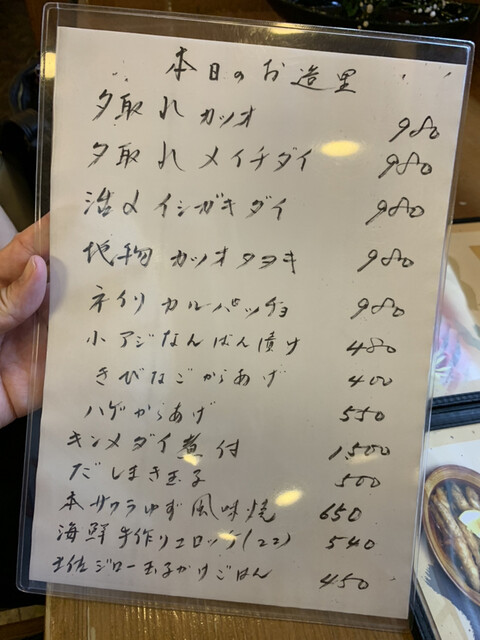 本日のお造里
夕取れ カツオ 980
夕取れ メイチダイ 980
活〆 イシガキダイ 980
地物 カツオタタキ 980
ネイリ カルパッチョ 980
小アジなんばん漬け 480
きびなごからあげ 400
ハゲからあげ 550
キンメダイ煮付 1500
だしまき玉子 500
本サワラゆず風味焼 650
海鮮手作りコロッケ(2コ) 540
土佐ジロー玉子かけごはん 450